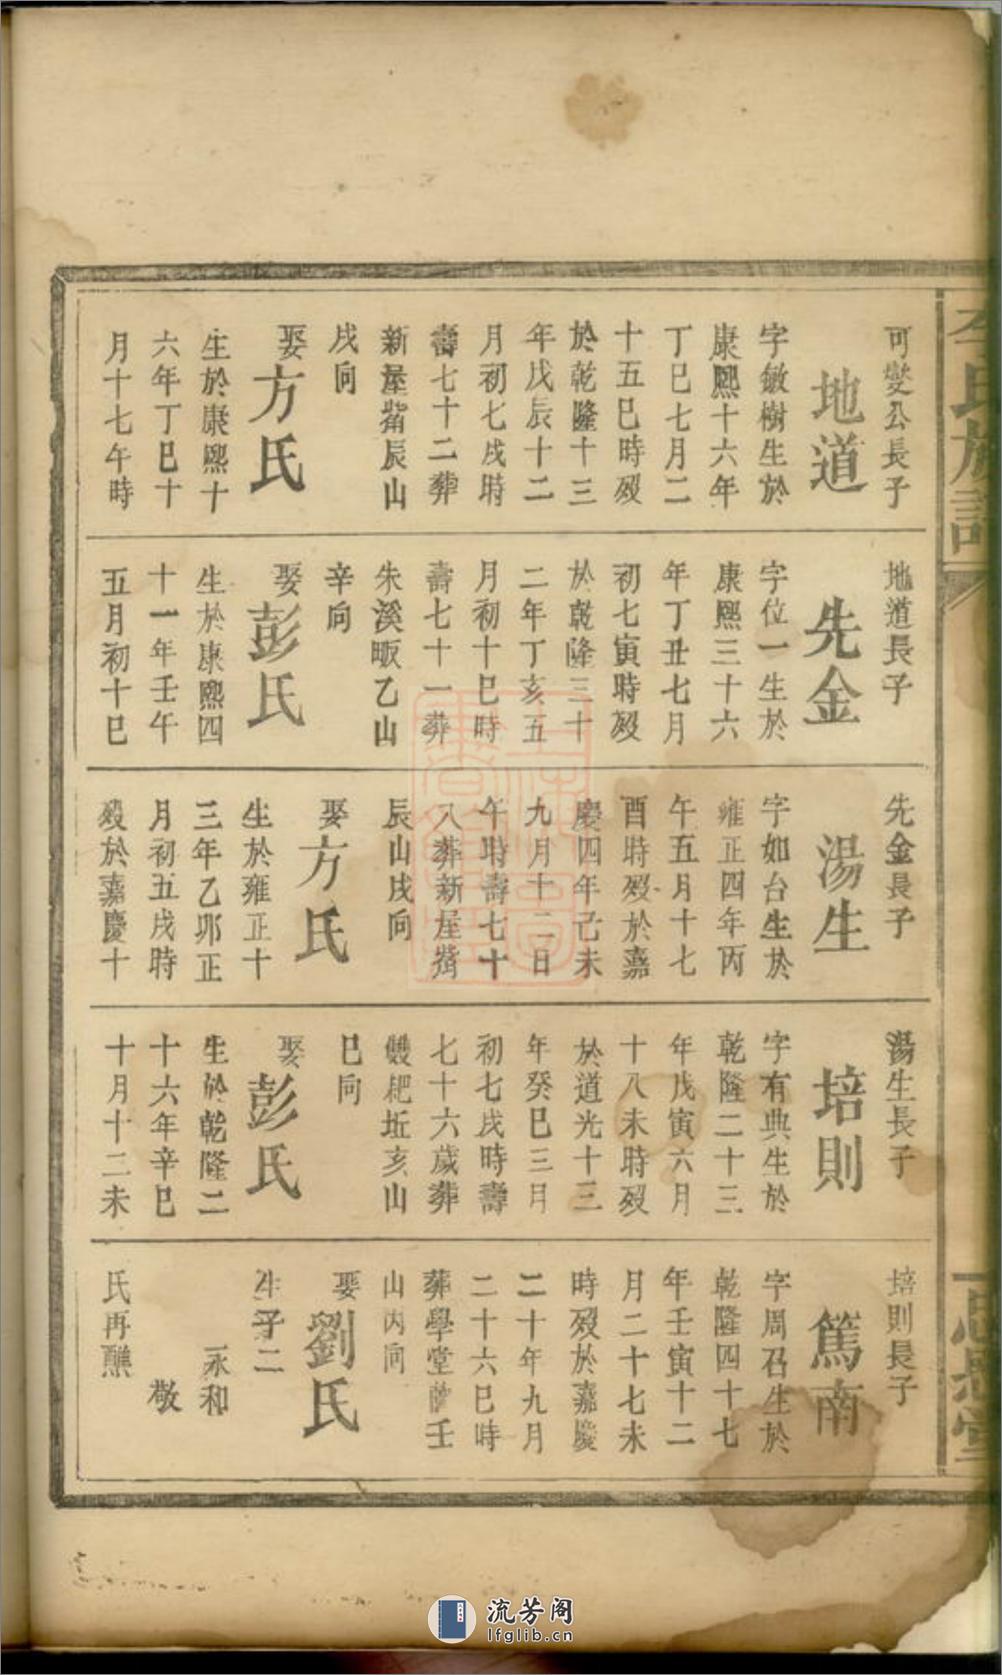 李氏族譜
可變公長子
地道
字敏樹生於
康熙十六年
丁巳七月二
十五巳時歿
於乾隆十三
年戊辰十二
月初七戌時
壽七十二葬
新屋觜辰山
戌向
娶方氏
生於康熙十
六年丁巳十
月十七午時
地道長子
先金
字位一生於
康熙三十六
年丁丑七月
初七寅時歿
於乾隆三十
二年丁亥五
月初十巳時
壽七十一葬
朱溪畈乙山
辛向
娶彭氏
生於康熙四
十一年壬午
五月初十巳
先金長子
湯生
字如台生於
雍正四年丙
午五月十七
酉時歿於嘉
慶四年己未
九月十二日
午時壽七十
八葬新屋觜
辰山戌向
娶方氏
生於雍正十
三年乙夘正
月初五戌時
歿於嘉慶十
湯生長子
培則
字有典生於
乾隆二十三
年戊寅六月
十八未時歿
於道光十三
年癸巳三月
初七戌時壽
七十六歲葬
雙耙坵亥山
巳向
娶彭氏
生於乾隆二
十六年辛巳
十月十二未
培則長子
篤南
字周召生於
乾隆四十七
年壬寅十二
月二十七未
時歿於嘉慶
二十年九月
二十六巳時
葬學堂壬
山丙向
娶劉氏
生子二
永和
敬
氏再醮
流芳阁
lfglib.cn